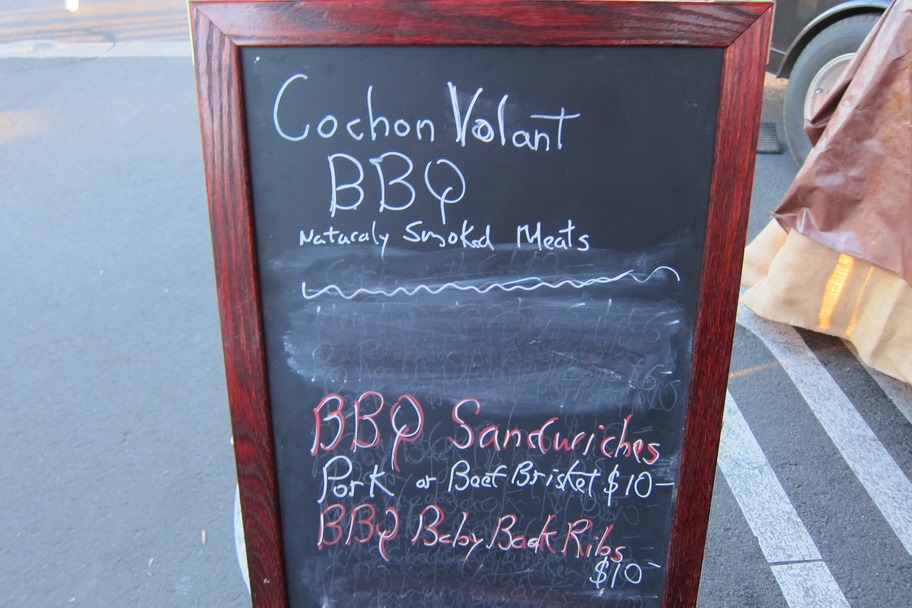 Cochon Volant
BBQ
Naturaly Smoked Meats
BBQ Sandwiches
Pork or Beef Brisket $10-
BBQ Baby Back Ribs
$10-